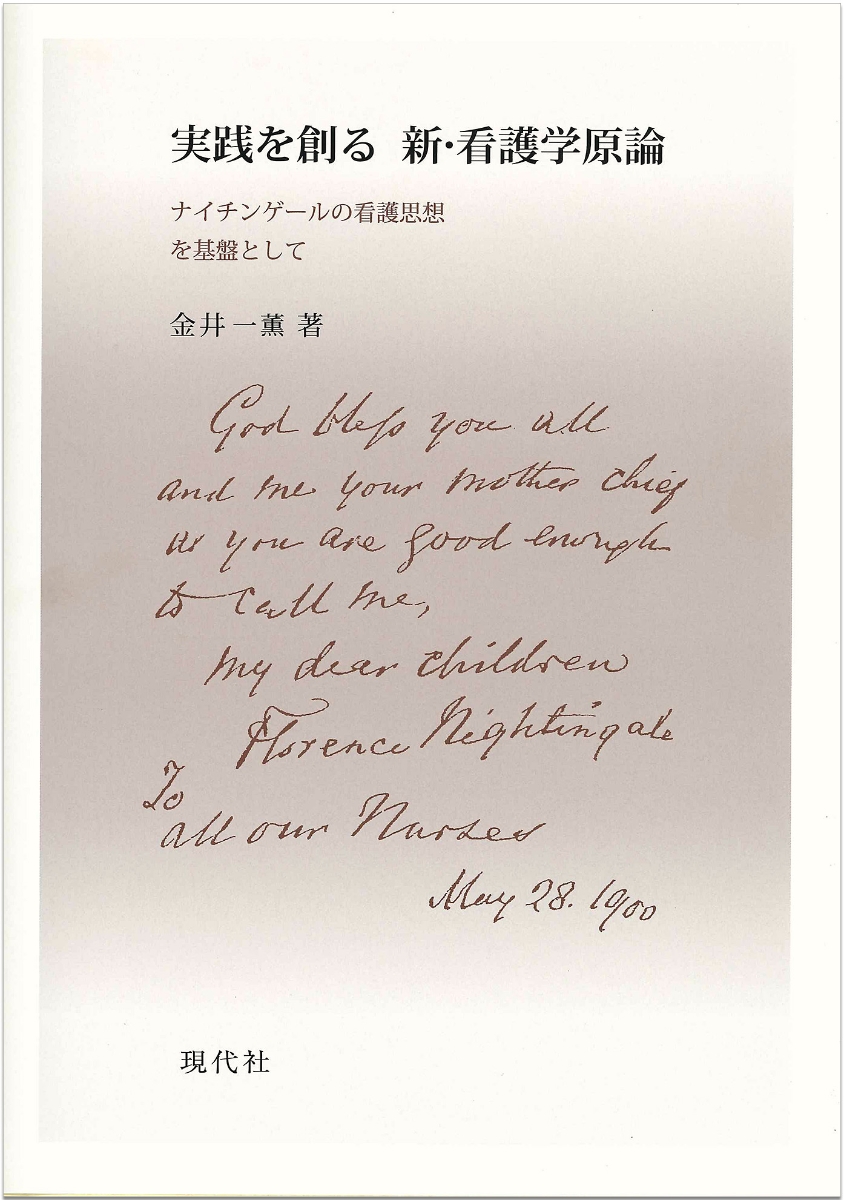 実践を創る 新・看護学原論
ナイチンゲールの看護思想
を基盤として
金井一薫 著
God bless you all
and me your mother chief
as you are good enough
to call me,
my dear children
Florence Nightingale
To
all our Nurses
May 28. 1900
現代社